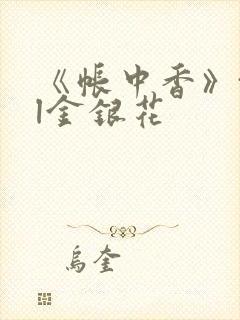 《帳中香》
l金銀花
烏奎